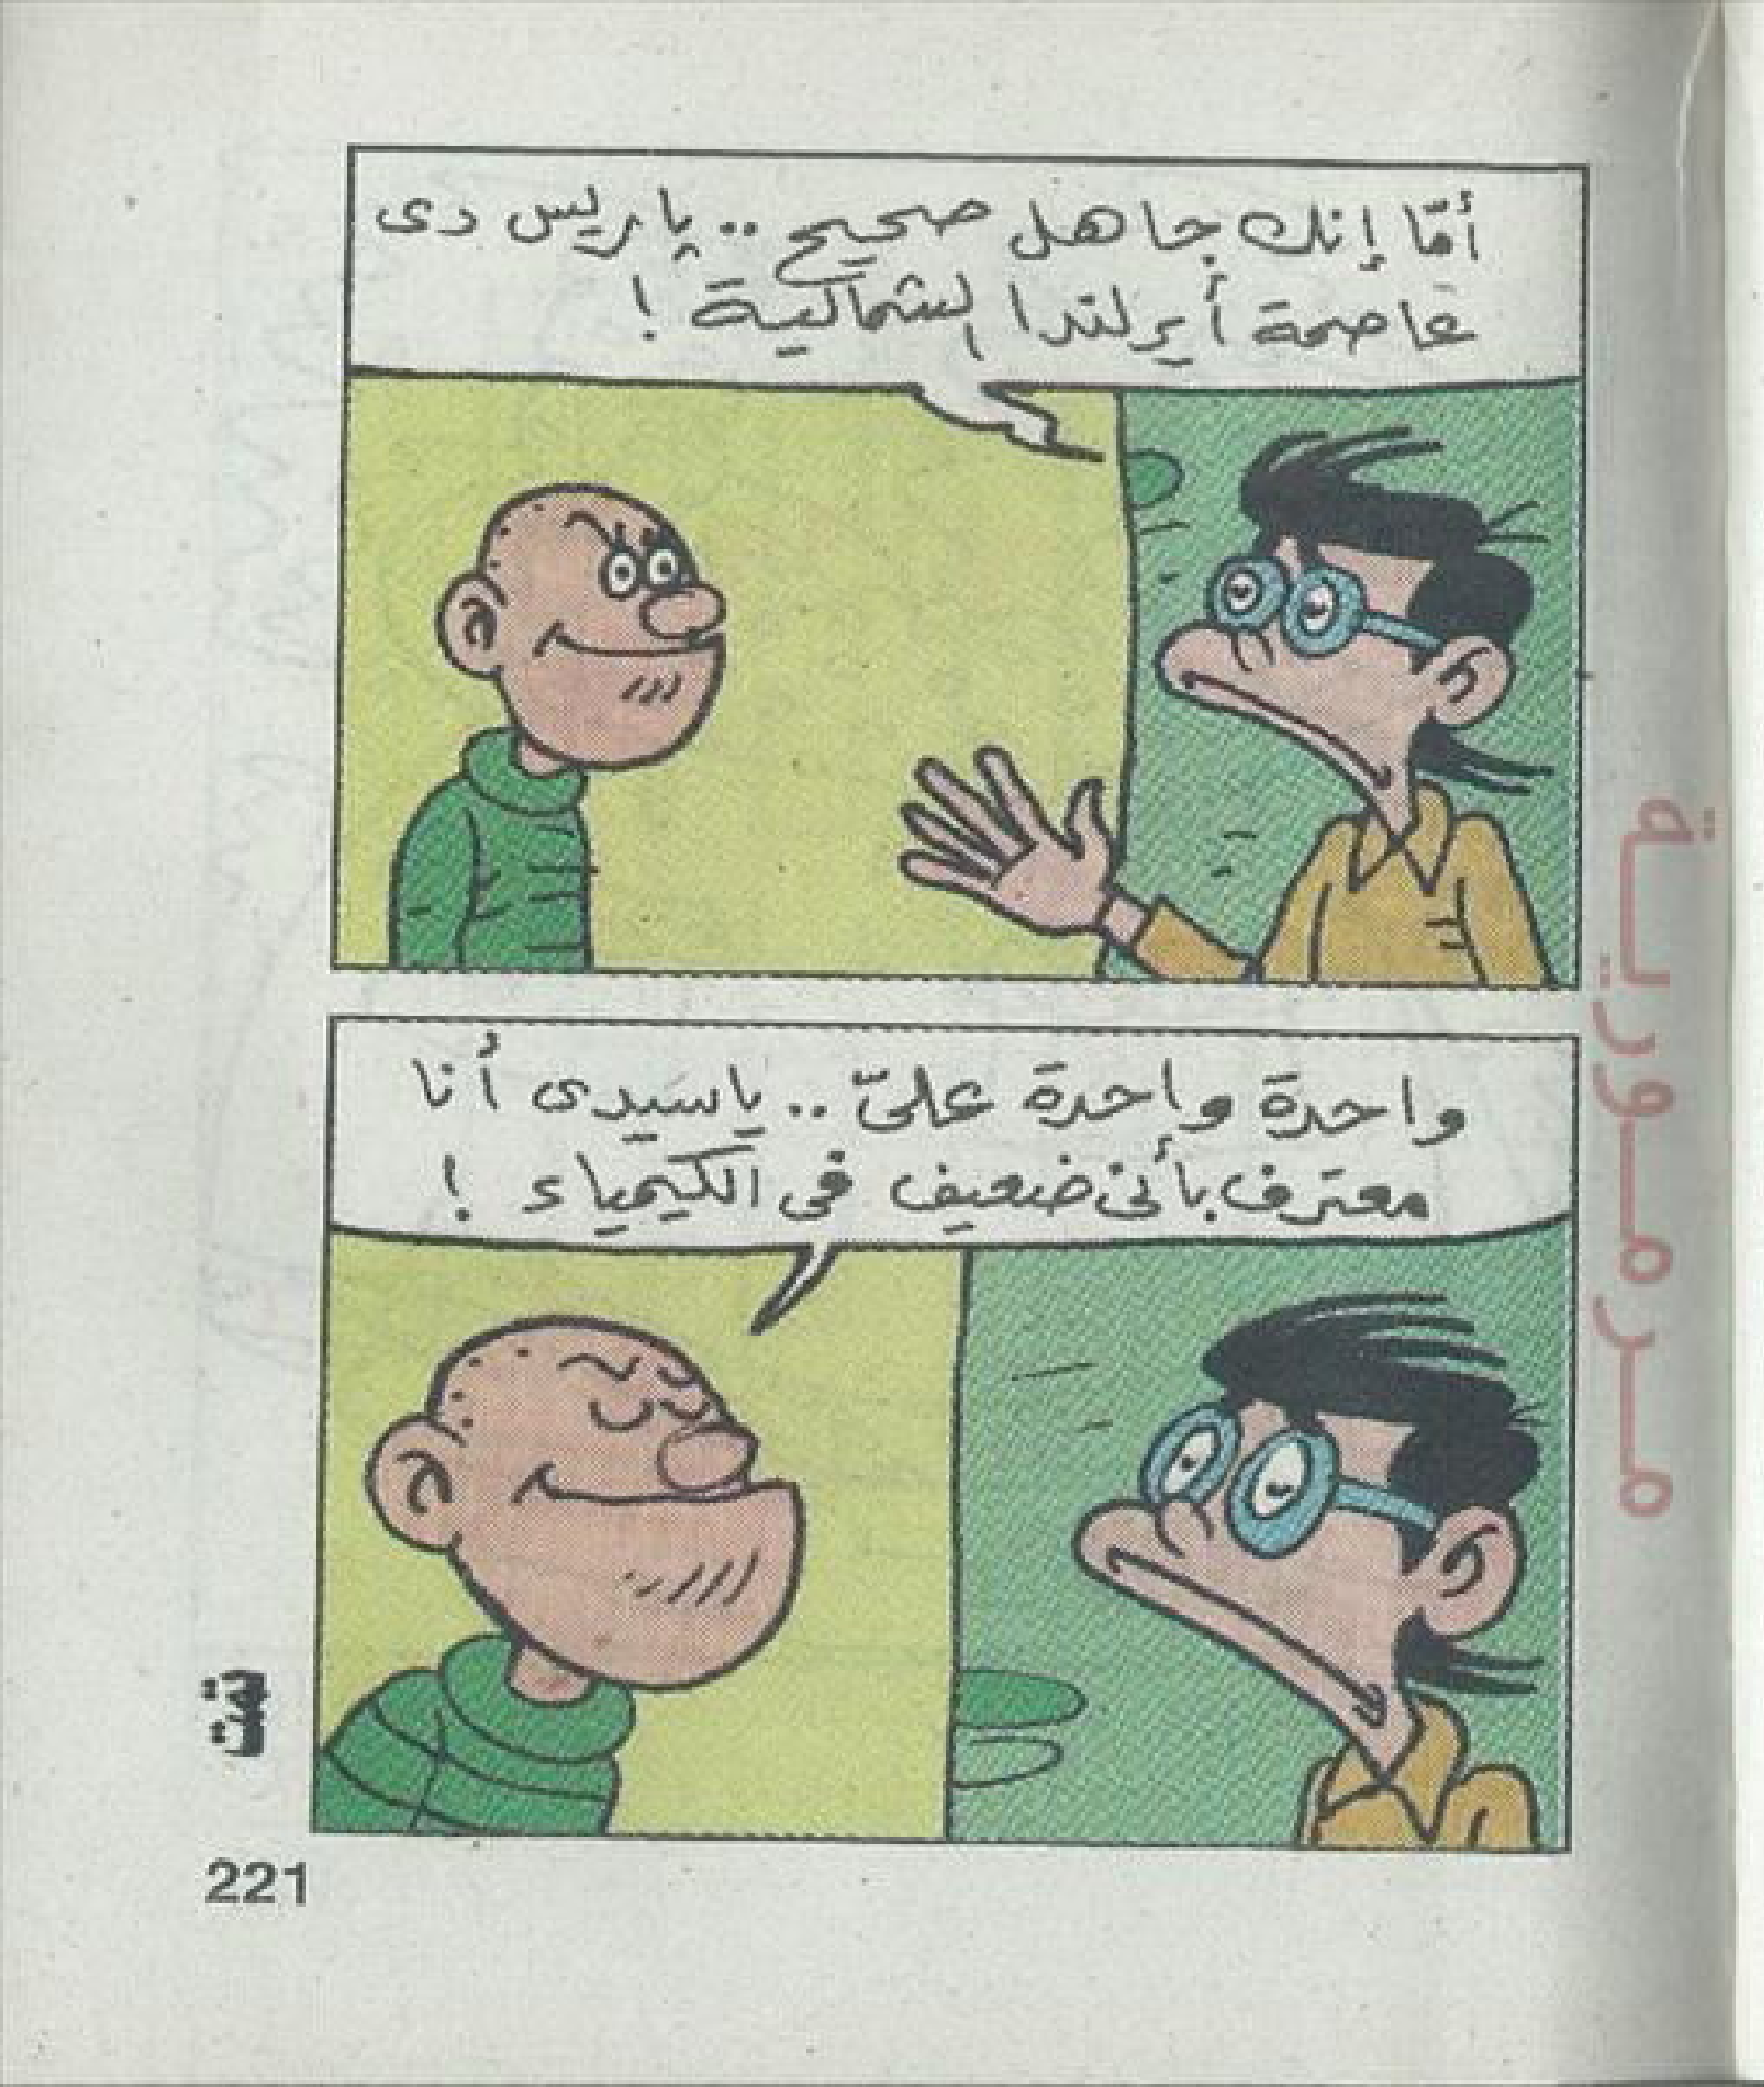 أمّا إنك جاهل صحيح .. پاريس دى
عاصمة أيرلندا الشمالية !
واحدة واحدة علىّ .. ياسيدى أنا
معترف بأنى ضعيف فى الكيمياء !
مرمورية
تمت
221